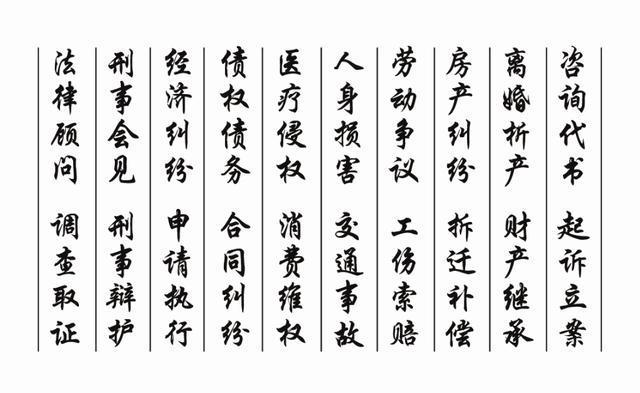 咨询代书 起诉立案
离婚析产 财产继承
房产纠纷 拆迁补偿
劳动争议 工伤索赔
人身损害 交通事故
医疗侵权 消费维权
债权债务 合同纠纷
经济纠纷 申请执行
刑事会见 刑事辩护
法律顾问 调查取证